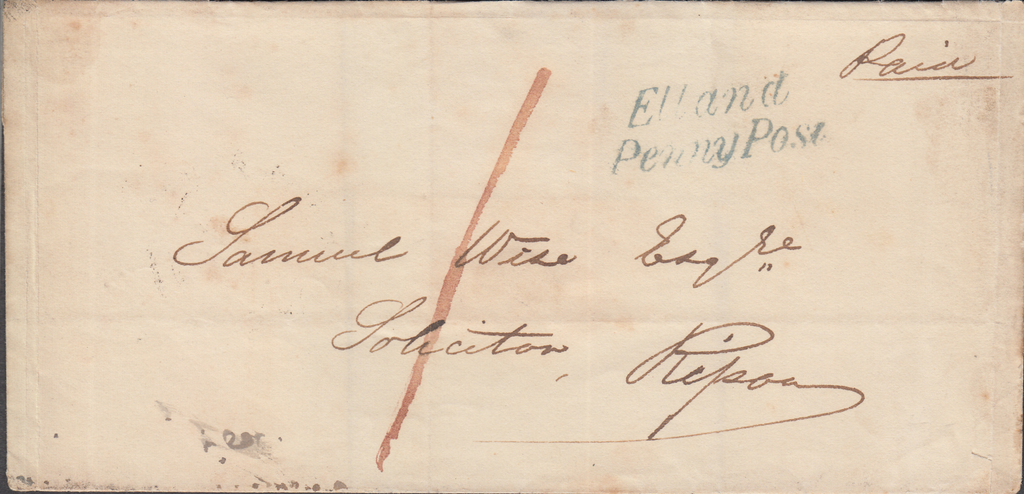 Paid
Elland
Penny Post
Samuel Wise Esqre
Solicitor,
Ripon